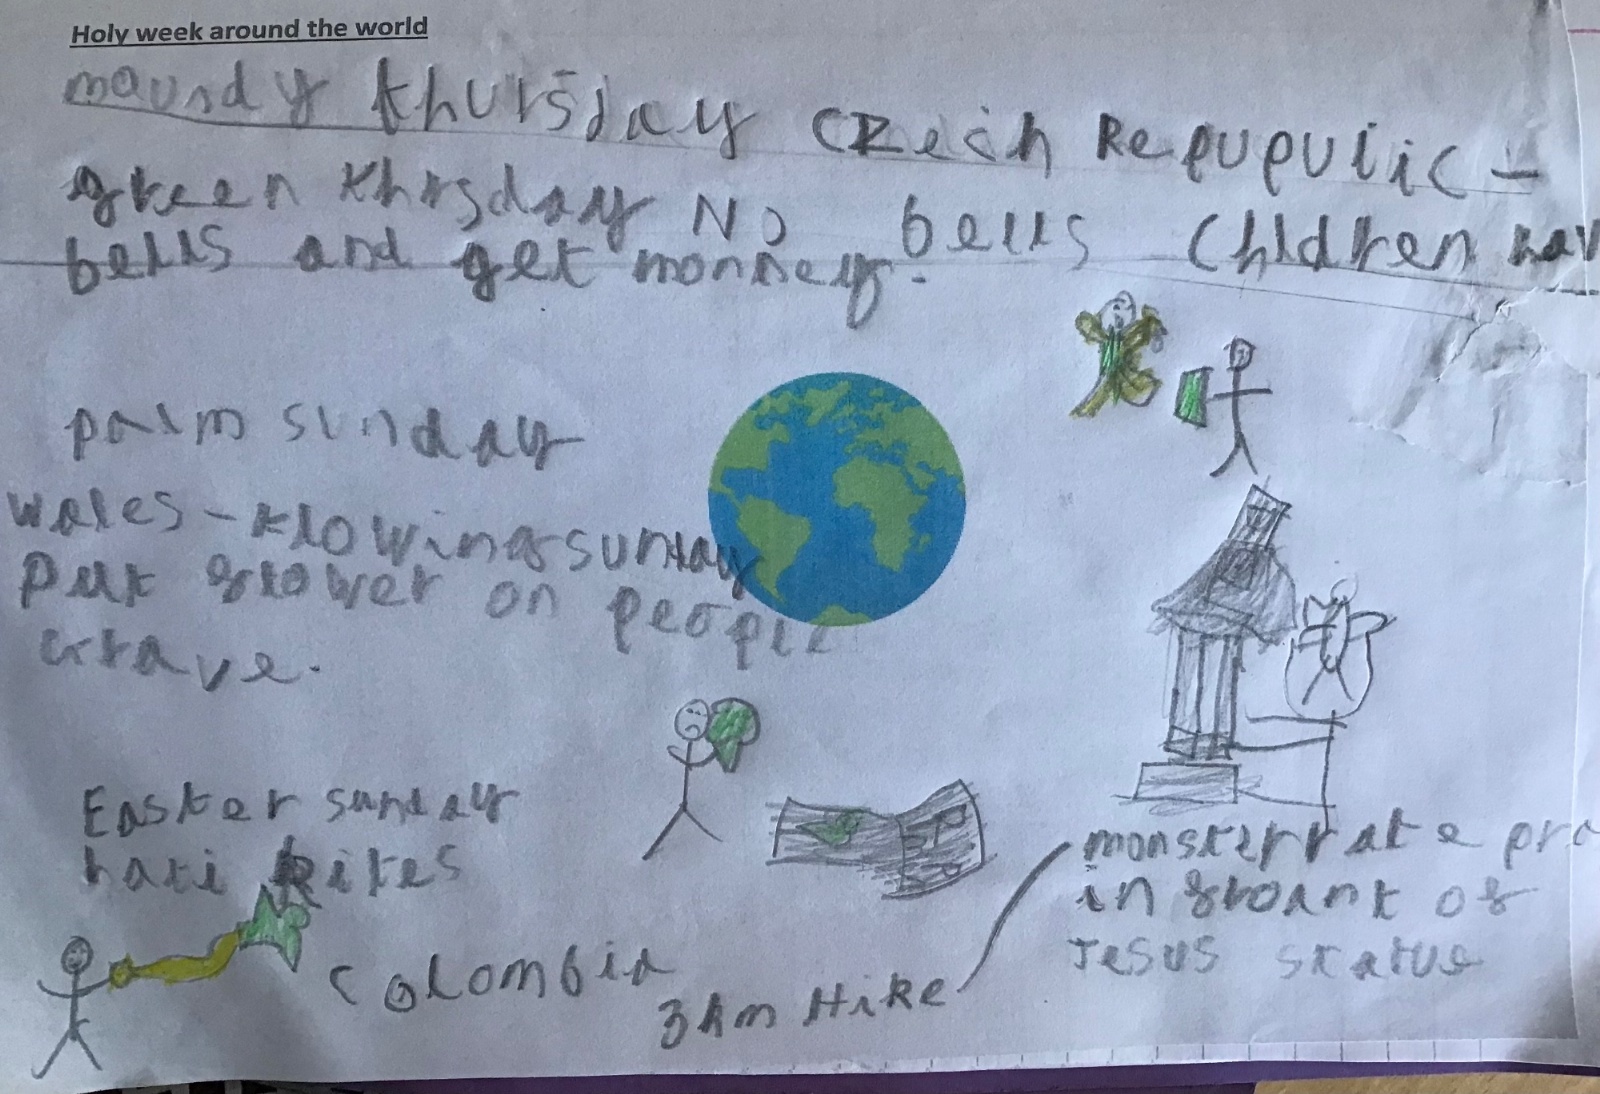 Holy week around the world
maundy thursday CZech Repupulic -
green thrsday No bells Chldren hav
bells and get monney.
palm sunday
wales - flowing sunday
Put flower on people
grave.
Easter sunday
hati kites
Colombia
3km Hike
monsterrat e pra
in froant of
Jesus statue